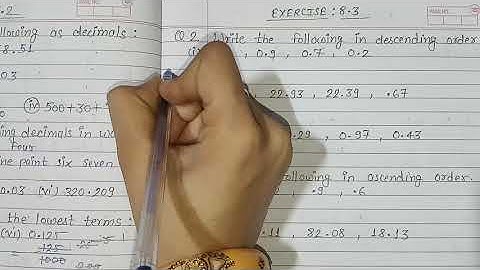 .2
llowing as decimals :
8.51
.03
(iv) 500+30+5
ing decimals in wo
four
ne point six seven.
0.03 (vi) 320.209
the lowest terms :
(vi) 0.125
125
1000
EXERCISE : 8.3
Q.2 Write the following in descending order
, 0.9 , 0.7 , 0.2
, 22.93 , 22.39 , .67
.29 , 0.97 , 0.43
ollowing in ascending order.
, .9 , .6
.11 , 82.08 , 18.13